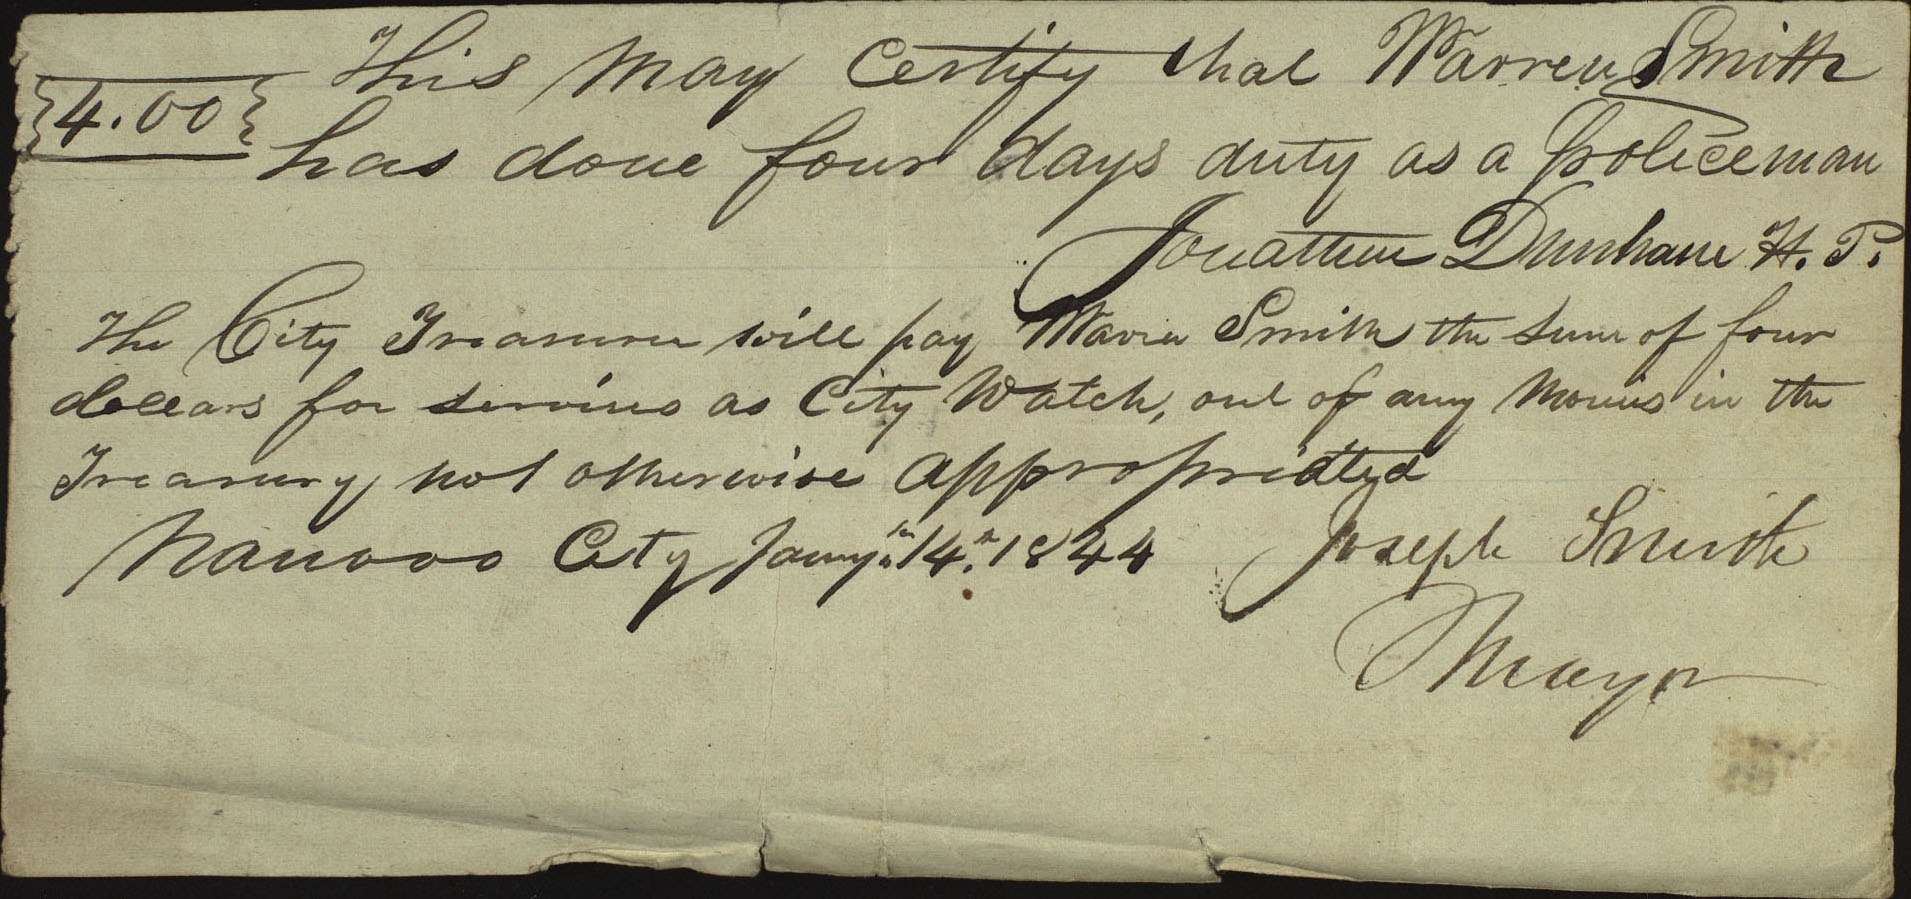 This may certify that Warren Smith
{4.00}
has done four days duty as a policeman
Jonathan Dunham H. P.
The City Treasurer will pay Warren Smith the sum of four
dollars for services as City Watch, out of any Monies in the
Treasury not otherwise appropriated
Nauvoo City Jany. 14th. 1844 Joseph Smith
Mayor